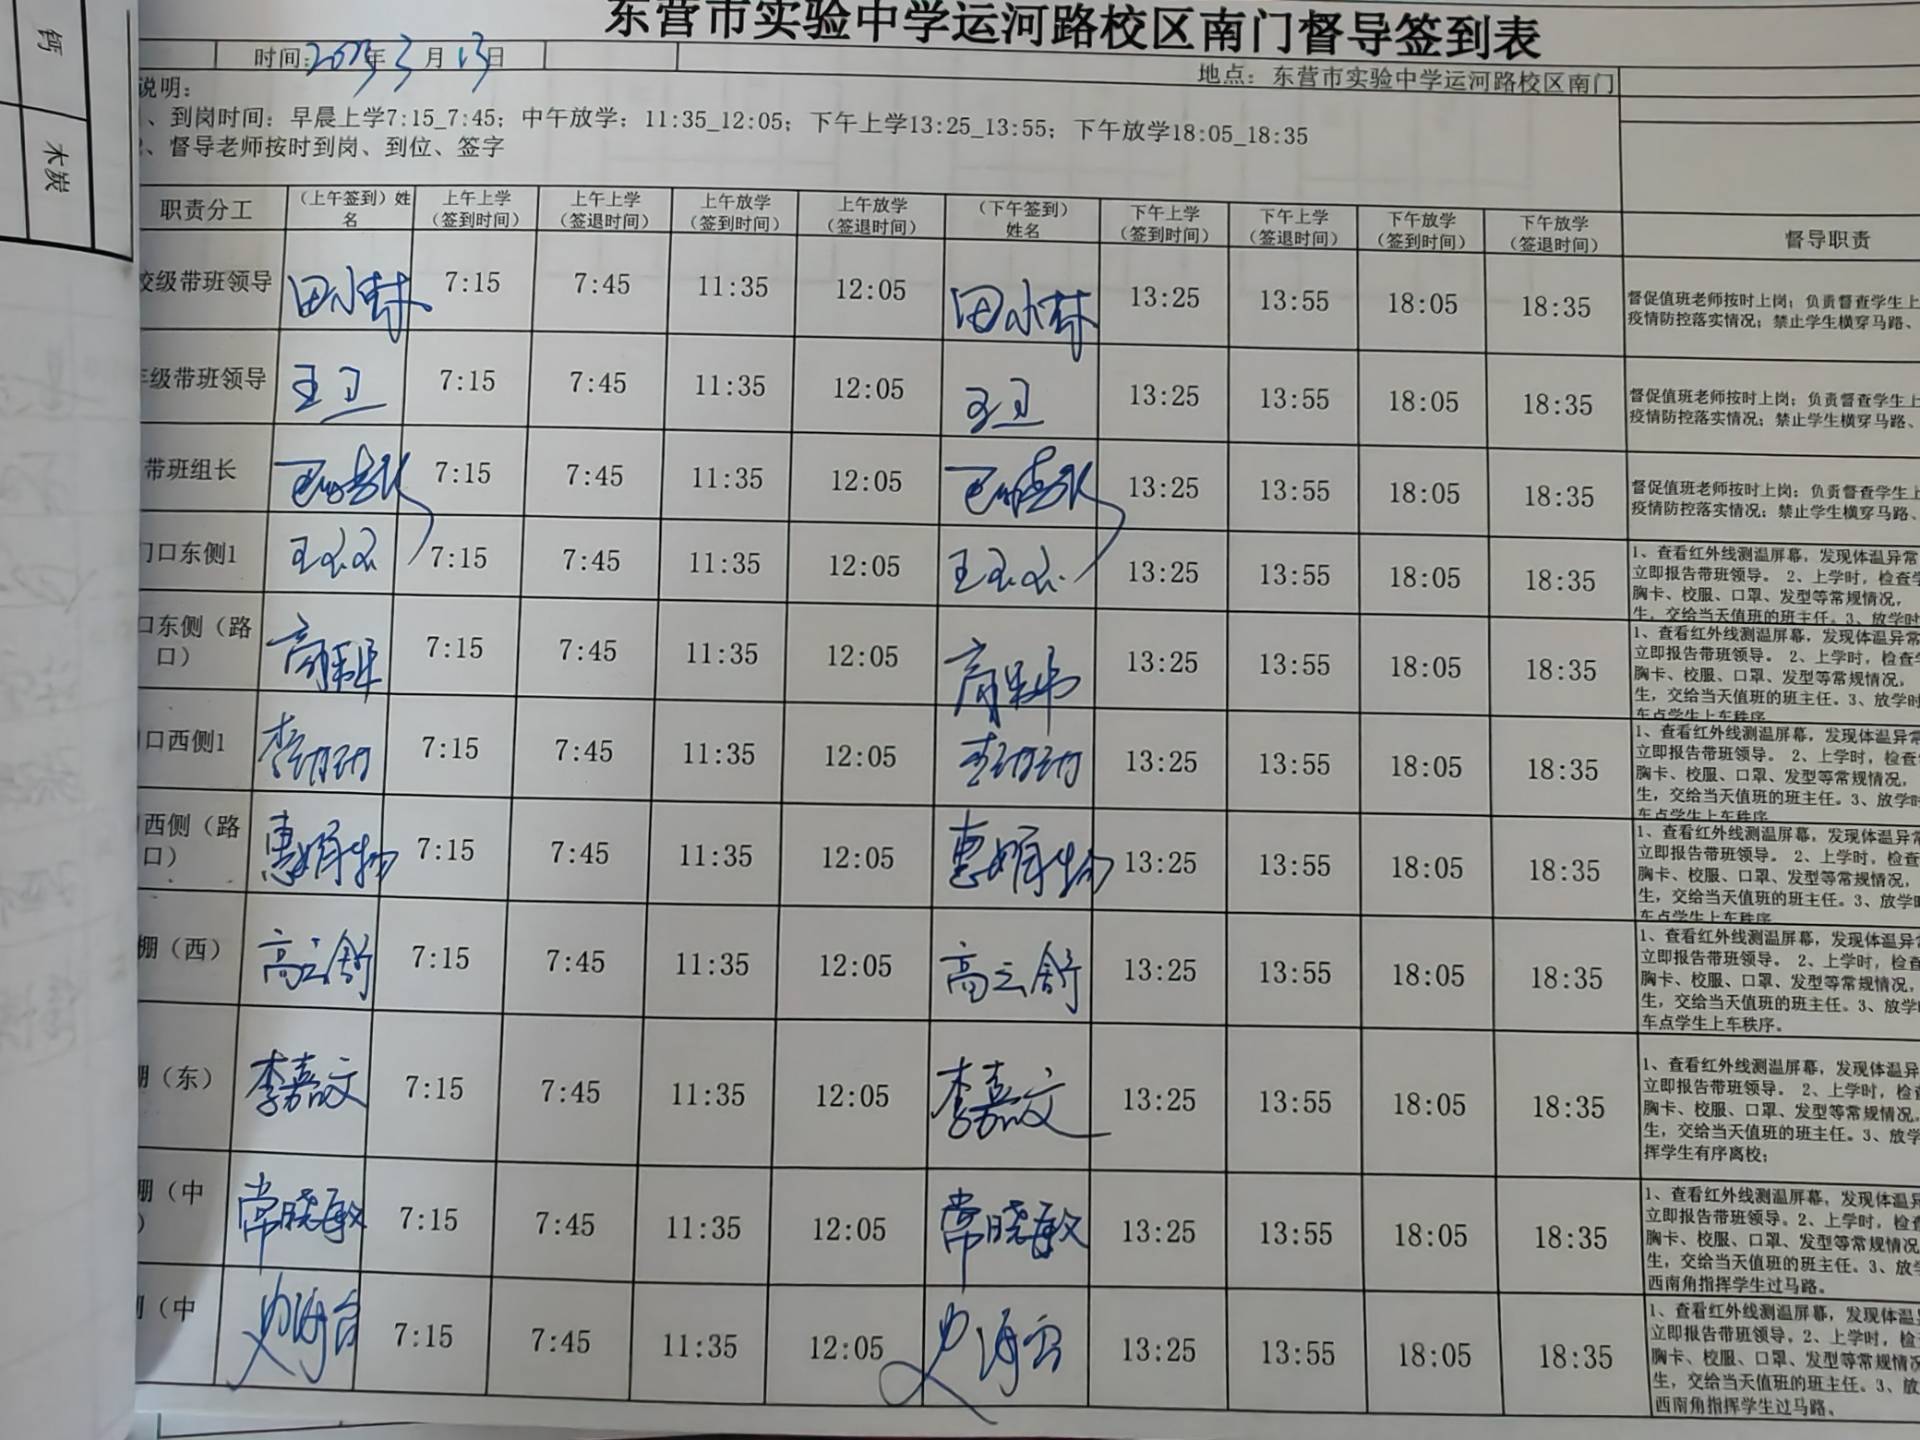 钙
木炭
东营市实验中学运河路校区南门督导签到表
时间:2023年3月13日
地点: 东营市实验中学运河路校区南门
说明:
、到岗时间: 早晨上学7:15_7:45; 中午放学: 11:35_12:05; 下午上学13:25_13:55; 下午放学18:05_18:35
、督导老师按时到岗、到位、签字
职责分工 (上午签到) 姓名 上午上学(签到时间) 上午上学(签退时间) 上午放学(签到时间) 上午放学(签退时间) (下午签到)姓名 下午上学(签到时间) 下午上学(签退时间) 下午放学(签到时间) 下午放学(签退时间) 督导职责
校级带班领导 田小林 7:15 7:45 11:35 12:05 田小林 13:25 13:55 18:05 18:35
督促值班老师按时上岗; 负责督查学生上
疫情防控落实情况; 禁止学生横穿马路、
年级带班领导 王卫 7:15 7:45 11:35 12:05 王卫 13:25 13:55 18:05 18:35
督促值班老师按时上岗; 负责督查学生上
疫情防控落实情况; 禁止学生横穿马路、
带班组长 7:15 7:45 11:35 12:05 13:25 13:55 18:05 18:35
督促值班老师按时上岗; 负责督查学生上
疫情防控落实情况; 禁止学生横穿马路、
门口东侧1 7:15 7:45 11:35 12:05 13:25 13:55 18:05 18:35
1、查看红外线测温屏幕, 发现体温异常
立即报告带班领导。 2、上学时, 检查学
胸卡、校服、口罩、发型等常规情况,
生, 交给当天值班的班主任。3、放学时
口东侧（路口） 7:15 7:45 11:35 12:05 13:25 13:55 18:05 18:35
1、查看红外线测温屏幕, 发现体温异常
立即报告带班领导。 2、上学时, 检查学
胸卡、校服、口罩、发型等常规情况,
生, 交给当天值班的班主任。3、放学时
车点学生上车秩序
口西侧1 李娜娜 7:15 7:45 11:35 12:05 李娜娜 13:25 13:55 18:05 18:35
1、查看红外线测温屏幕, 发现体温异常
立即报告带班领导。 2、上学时, 检查
胸卡、校服、口罩、发型等常规情况,
生, 交给当天值班的班主任。3、放学时
车点学生上车秩序
西侧（路口） 7:15 7:45 11:35 12:05 13:25 13:55 18:05 18:35
1、查看红外线测温屏幕, 发现体温异常
立即报告带班领导。 2、上学时, 检查
胸卡、校服、口罩、发型等常规情况,
生, 交给当天值班的班主任。3、放学时
车点学生上车秩序
棚（西） 高云舒 7:15 7:45 11:35 12:05 高云舒 13:25 13:55 18:05 18:35
1、查看红外线测温屏幕, 发现体温异常
立即报告带班领导。 2、上学时, 检查
胸卡、校服、口罩、发型等常规情况,
生, 交给当天值班的班主任。3、放学时
车点学生上车秩序。
棚（东） 李嘉文 7:15 7:45 11:35 12:05 李嘉文 13:25 13:55 18:05 18:35
1、查看红外线测温屏幕, 发现体温异
立即报告带班领导。 2、上学时, 检查
胸卡、校服、口罩、发型等常规情况,
生, 交给当天值班的班主任。3、放学
挥学生有序离校;
棚（中） 常晓敏 7:15 7:45 11:35 12:05 常晓敏 13:25 13:55 18:05 18:35
1、查看红外线测温屏幕, 发现体温异
立即报告带班领导。2、上学时, 检查
胸卡、校服、口罩、发型等常规情况
生, 交给当天值班的班主任。3、放学
西南角指挥学生过马路。
（中 7:15 7:45 11:35 12:05 13:25 13:55 18:05 18:35
1、查看红外线测温屏幕, 发现体温异
立即报告带班领导。2、上学时, 检
胸卡、校服、口罩、发型等常规情况
生, 交给当天值班的班主任。3、放
西南角指挥学生过马路、